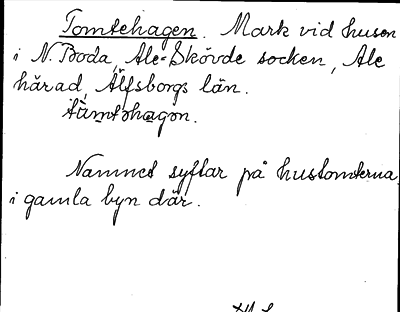 Tomtehagen. Mark vid husen
i N. Boda, Ale-Skövde socken, Ale
härad, Älfsborgs län.
Namnet syftar på hustomterna
i gamla byn där.